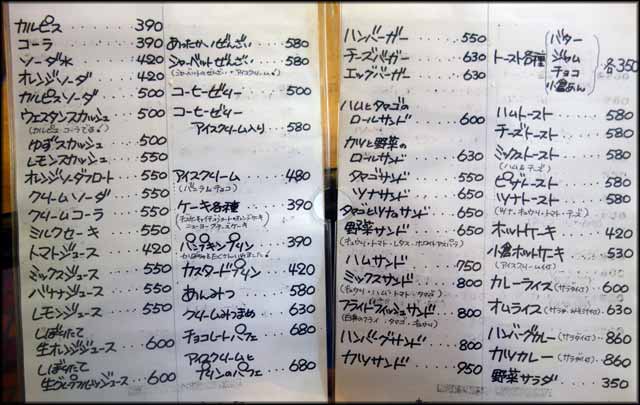 カルピス 390
コーラ 390
ソーダ水 420
オレンジソーダ 420
カルピスソーダ 500
ウェスタンスカッシュ
(カルピス・コーラです♪) 500
ゆずスカッシュ 500
レモンスカッシュ 550
オレンジソーダフロート 550
クリームソーダ 550
クリームコーラ 550
ミルクセーキ 550
トマトジュース 420
ミックスジュース 550
バナナジュース 550
レモンジュース 550
しぼりたて
生オレンジジュース 600
しぼりたて
生グレープフルーツジュース 600
あったかいぜんざい 580
シャーベットぜんざい 580
コーヒーゼリー 500
コーヒーゼリー
アイスクリーム入り 580
アイスクリーム 480
(バニラ・チョコ)
ケーキ各種 390
ニューヨークチーズケーキ
パンプキンプリン 390
カスタードプリン 420
あんみつ 580
クリームみつまめ 630
チョコレートパフェ 680
アイスクリームと
プリンのパフェ 680
ハンバーガー 550
チーズバーガー 630
エッグバーガー 630
ハムとタマゴの
ロールサンド 600
カツと野菜の
ロールサンド 630
タマゴサンド 550
ツナサンド 650
タマゴとツナのサンド 650
野菜サンド 650
(キュウリ・トマト・レタス・ホワイトアスパラ)
ハムサンド 750
ミックスサンド 800
(キュウリ・ハム・トマト・タマゴ)
フライドフィッシュサンド 800
(白身のフライ・タマゴ・キュウリ)
ハンバーグサンド 800
カツサンド 950
トースト各種
バター
ジャム
チョコ
小倉あん
各350
ハムトースト 580
チーズトースト 580
ミックストースト 580
(ハム・チーズ)
ピザトースト 580
ツナトースト 580
(ツナ・キュウリ・トマト・チーズ)
ホットケーキ 420
小倉ホットケーキ 530
(アイスクリーム付)
カレーライス(サラダ付) 600
オムライス 630
ハンバーグカレー(サラダ付) 860
カツカレー(サラダ付) 860
野菜サラダ 350